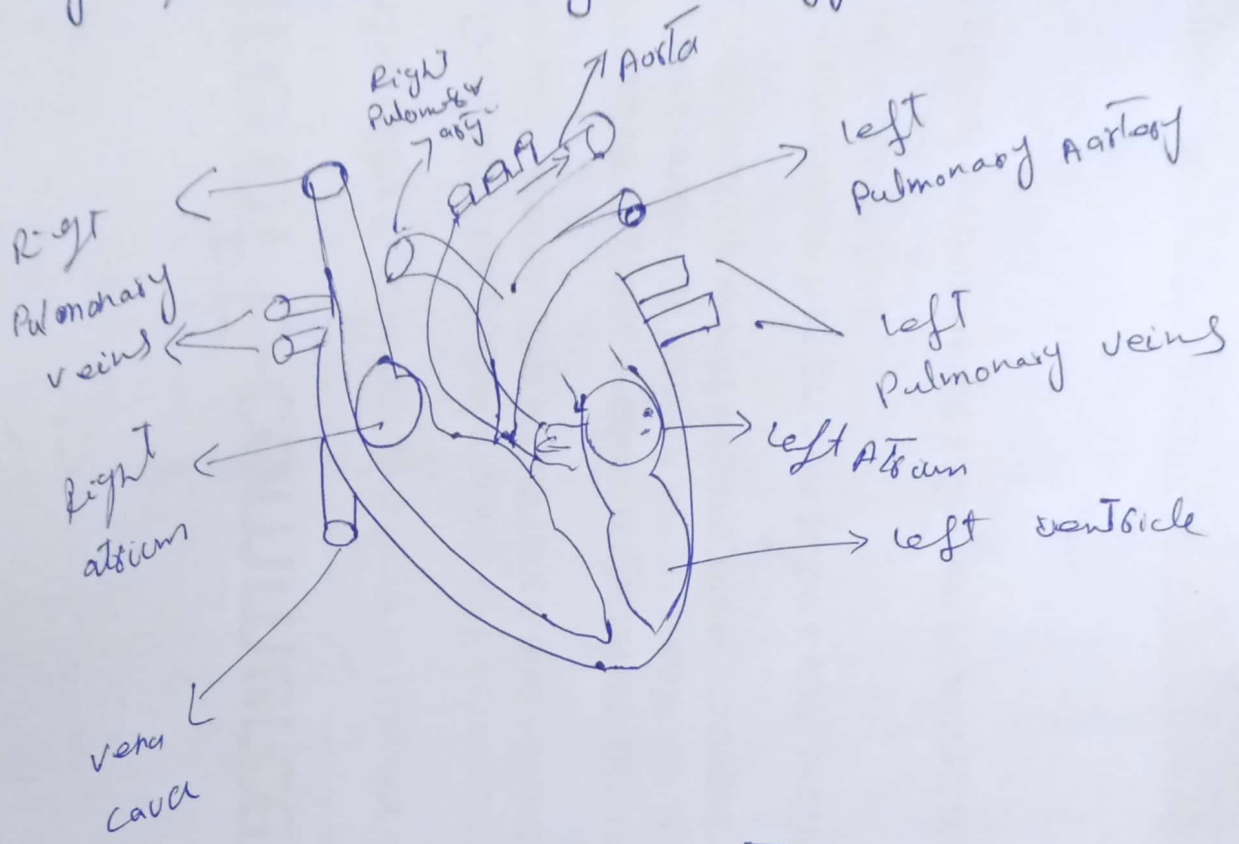 Right
Pulomosr
arty
Aorta
left
Pulmonary Aartery
Right
Pulmonary
veins
left
Pulmonary veins
left Atrium
Right
atrium
left ventricle
vena
cava